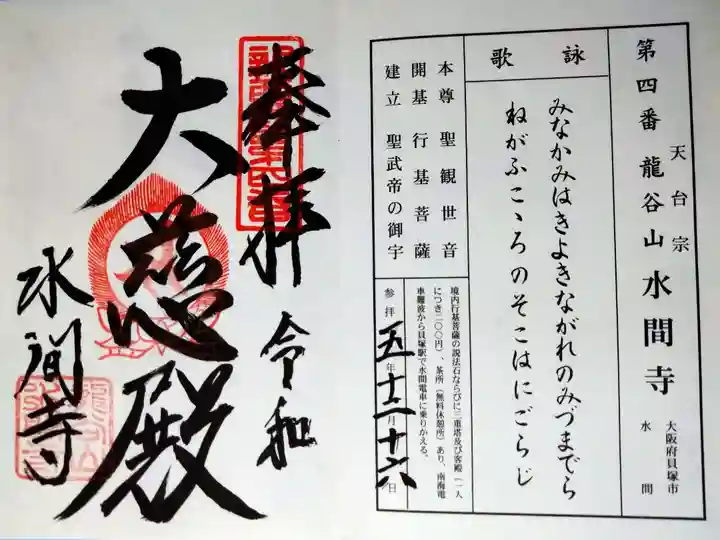 第四番 龍谷山 水間寺
天台宗
大阪府貝塚市
水間
詠歌
みなかみはきよきながれのみづまでら
ねがふこゝろのそこはにごらじ
本尊 聖観世音
開基 行基菩薩
建立 聖武帝の御宇
境内行基菩薩の説法石ならびに三重塔及び客殿(一人
につき二〇〇円)、茶所(無料休憩所)あり、南海電
車難波から貝塚駅で水間電車に乗りかえる。
参拝 五年十二月十六日
奉拝 令和
大慈殿
水間寺